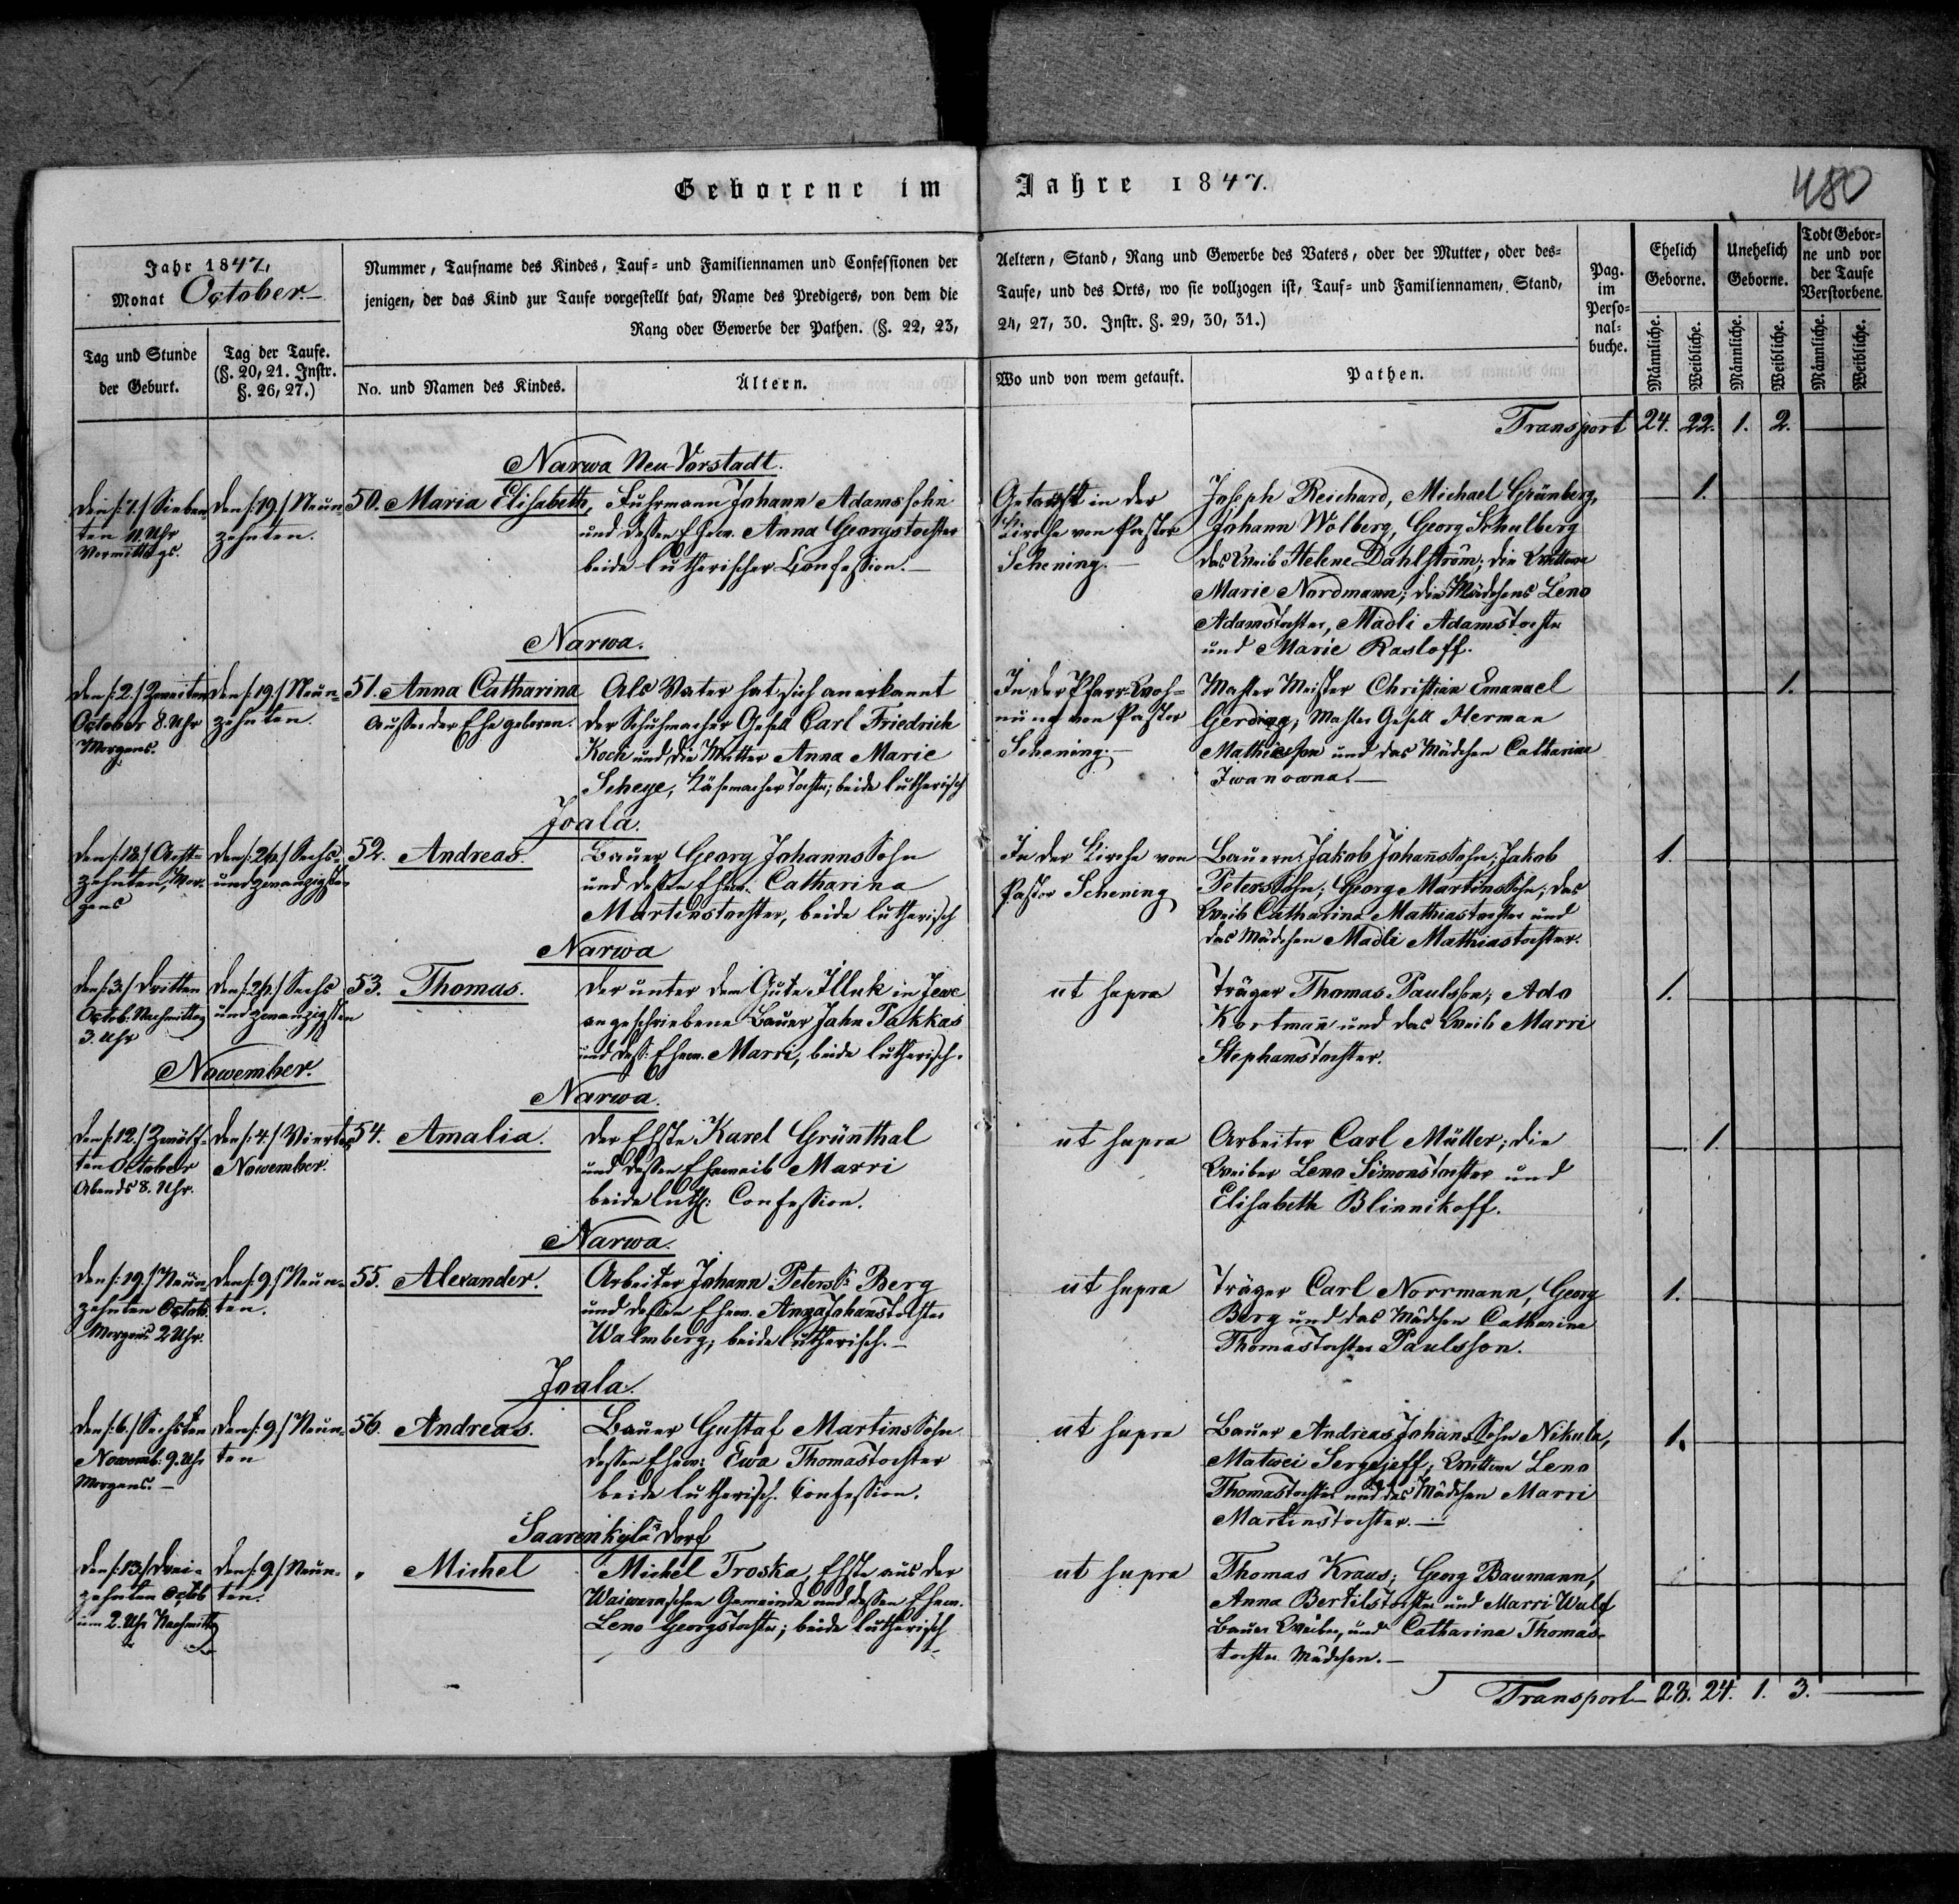 Geborene im Jahre 1847.
480
Jahr 1847.
Monat October.
Tag und Stunde der Geburt.
Tag der Taufe. (§. 20, 21. Instr. §. 26, 27.)
Nummer, Taufname des Kindes, Tauf- und Familiennamen und Confessionen der
jenigen, der das Kind zur Taufe vorgestellt hat, Name des Predigers, von dem die
Rang oder Gewerbe der Pathen. (§. 22, 23,
No. und Namen des Kindes.
Ältern.
Aeltern, Stand, Rang und Gewerbe des Vaters, oder der Mutter, oder des-
Taufe, und des Orts, wo sie vollzogen ist, Tauf- und Familiennamen, Stand,
24, 27, 30. Instr. §. 29, 30, 31.)
Wo und von wem getauft.
Pathen.
Pag. im Perso-nal-buche.
Ehelich Geborne.
Unehelich Geborne.
Todt Gebor-ne und vor der Taufe Verstorbene.
Männliche. Weibliche. Männliche. Weibliche. Männliche. Weibliche.
Transport 24. 22. 1. 2.
Narwa Neu-Vorstadt.
den /:7./ Sieben-
ten 11 Uhr
Vormittags.
den /:19./ Neun
zehnten.
50. Maria Elisabeth,
Fuhrmann Johann Adamssohn
und dessen Ehew. Anna Georgstochter
beide lutherischer Confession.
Getauft in der
Kirche von Pastor
Schening.
Joseph Reichard, Michael Grünberg,
Johann Wolberg, Georg Schulberg
das Weib Helene Dahlström; die Wittwe
Marie Nordmann; die Mädchens Leno
Adamstochter, Madli Adamstochter
und Marie Kasloff.
1.
Narwa.
den /:2./ Zweiten
October 8. Uhr
Morgens.
den /:19./ Neun-
zehnten.
51. Anna Catharina
Ausser der Ehe geboren.
Als Vater hat sich anerkannt
der Schuhmacher Gesell Carl Friedrich
Koch und die Mutter Anna Marie
Scheye, tochter; beide lutherisch
In der Pfarr-Woh-
nung von Pastor
Schening.
Mahler Meister Christian Emanuel
Gerding, Mahler Gesell Herman
Mathiesson und das Mädchen Catharina
Iwanowna.
1.
Joala.
den /:18./ Acht-
zehnten, Mor-
gens
den /:26./ Sechs-
undzwanzigsten
52. Andreas.
Bauer Georg JohannsSohn
und dessen Ehew. Catharina
Martinstochter, beide lutherisch
In der Kirche von
Pastor Schening
Bauern: Jakob JohannsSohn; Jakob
PetersSohn; Georg MartinsSohn; das
Weib Catharina Mathiastochter und
das Mädchen Madli Mathiastochter.
1.
Narwa
den /:3./ Dritten
Octob. Nachmittag
3. Uhr
den /:26./ Sechs
undzwanzigsten
53. Thomas.
der unter dem Gute Illuk in Jewe
angeschriebene Bauer Jahn Pakkas
und dess: Ehew. Marri, beide lutherisch.
ut supra
Träger Thomas Paulsson; Ado
Kortmann und das Weib Marri
Stephanstochter.
1.
November.
Narwa.
den /:12./ Zwölf-
ten October
Abends 8. Uhr.
den /:4./ Vierten
November.
54. Amalia.
der Ehste Karel Grünthal
und dessen Eheweib Marri
beide luth: Confession.
ut supra
Arbeiter Carl Müller; die
Weiber Leno Simonstochter und
Elisabeth Blinnikoff.
1.
Narwa.
den /:19./ Neun-
zehnten Octob.
Morgens 2 Uhr.
den /:9./ Neun-
ten.
55. Alexander.
Arbeiter Johann PetersS: Berg
und dessen Ehew. Anna Johanstochter
Walmberg; beide lutherisch.
ut supra
Träger Carl Norrmann, Georg
Berg und das Mädchen Catharina
Thomastochter Paulsson.
1.
Joala.
den /:6./ Sechsten
Novemb. 9. Uhr
Morgens.
den /:9./ Neun-
ten
56. Andreas.
Bauer Gustaf MartinsSohn
dessen Ehew: Ewa Thomastochter
beide lutherisch. Confession.
ut supra
Bauer Andreas JohansSohn Nikula,
Matwei Sergejeff; Wittwe Leno
Thomastochter und das Mädchen Marri
Martinstochter.
1.
Saarenkylä Dorf
den /:13./ Drei-
zehnten Octob
um 2. Uhr Nachmittg
den /:9./ Neun-
ten.
" Michel
Michel Troska, Ehste aus der
Waiwaraschen Gemeinde und dessen Ehew.
Leno Georgstochter; beide lutherisch
ut supra
Thomas Kraus; Georg Baumann,
Anna Bertilstochter und Marri Wulf
Bauer Weiber, und Catharina Thomas-
tochter Mädchen.
Transport 28. 24. 1. 3.